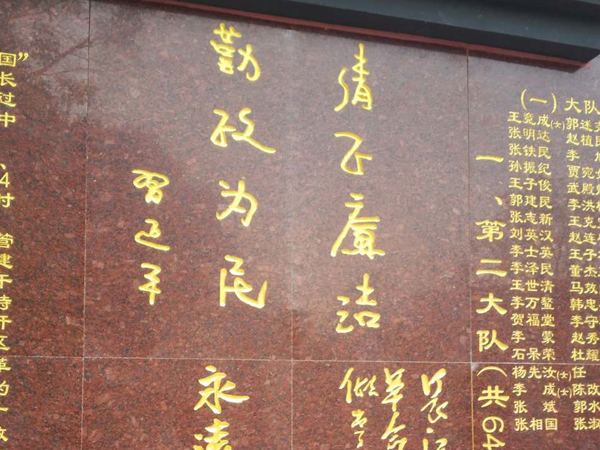 (一)大队
王竞成(女)郭迷
张明达 赵植
张铁民 李
孙振纪 贾宛
王子俊 武殿
郭建民 李洪
张志新 王克
刘英汉 赵连
李士英 王子
李泽民 董杰
王世清 马效
李万鳌 韩忠
贺福堂 李守
李蒙 赵秀
石杲荣 杜耀
杨先汝(女)任
李成(女)陈改
张斌 郭水
张相国 张淑
一、第二大队(共64
清正廉洁
革命
勤政为民
永远
習近平
国”
长
过
中
、
4
村
管
建
于
特
开
区
革
的